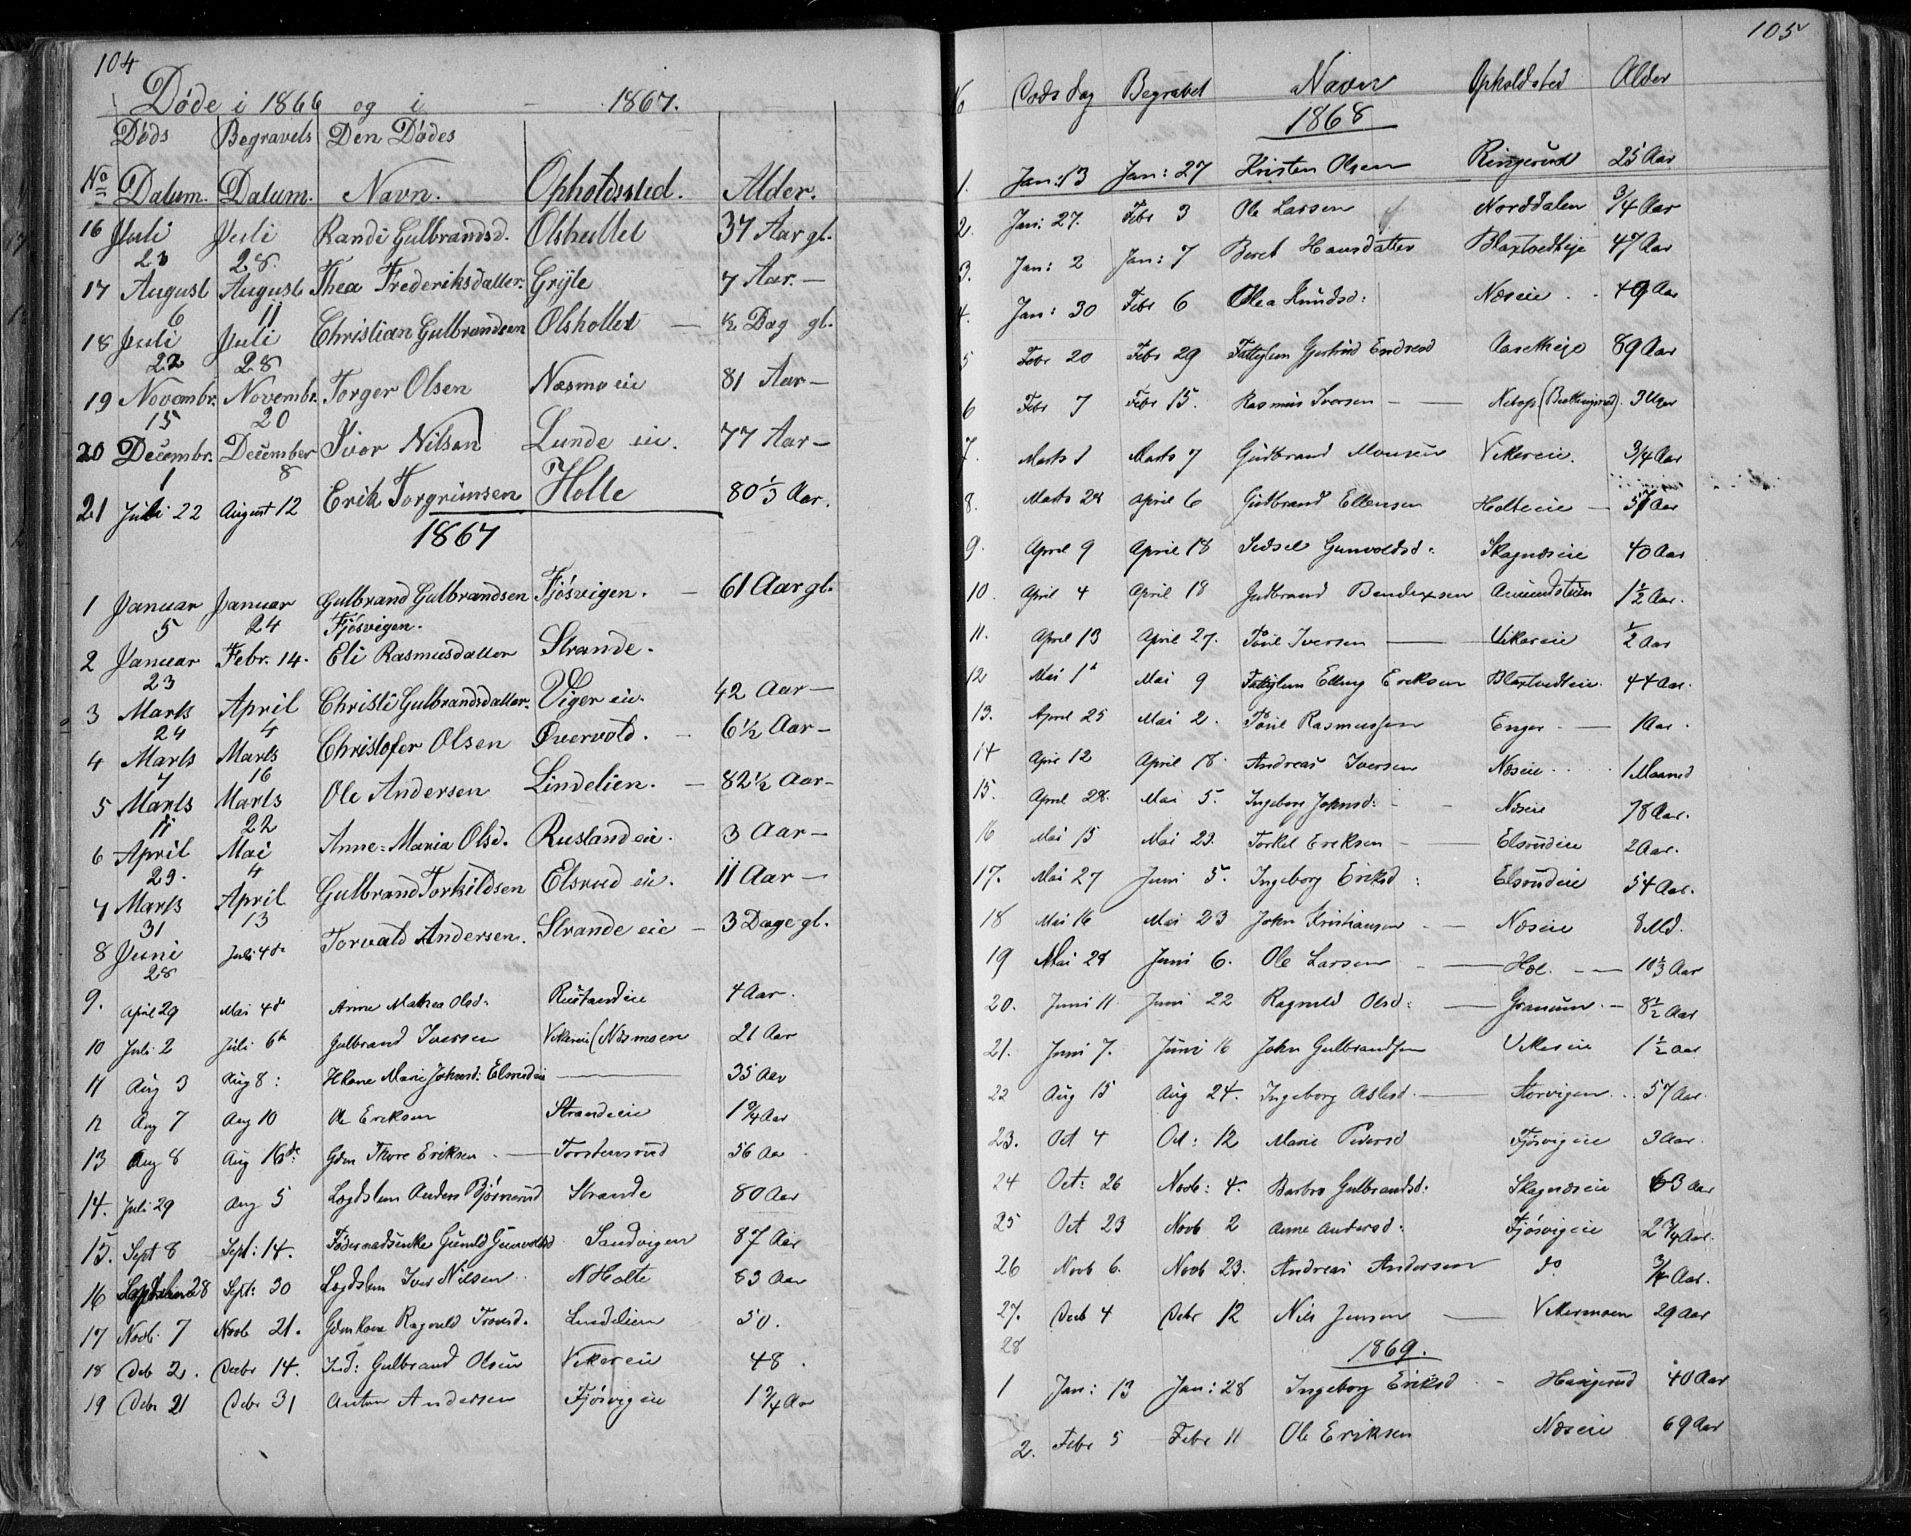 104
Døde i 1866 og i - 1867.
Døds Begravels Den Dødes
No Datum. Datum. Navn. Opholdssted. Alder.
16 Juli 23 Juli 28. Randi Gulbrandsd. Olshullet 37 Aar gl.
17 August 6 August 11 Thea Frederiksdatter. Gryte 7 Aar. —
18 Juli 22 Juli 28 Christian Gulbrandsen Olshollet — ½ Dag gl.
19 Novembr. 15 Novembr. 20 Torger Olsen Næsmoeie 81 Aar —
20 Decembr. 1 December 8 Iver Nilsen Lunde eie. 77 Aar —
21 Juli 22 August 12 Erik Torgrimsen Holte 80⅓ Aar.
1867
1 Januar 5 Januar 24 Gulbrand Gulbrandsen Fjösvigen. Fjösvigen. — 61 Aar gl.
2 Januar 23 Febr. 14. Eli Rasmusdatter Strande.
3 Marts 24 April 4 Christi Gulbrandsdatter. Viger eie. 42 Aar —
4 Marts 7 Marts 16 Christofer Olsen Øvervold. — 6½ Aar —
5 Marts 11 Marts 22 Ole Andersen Lindelien. — 82½ Aar —
6 April 29. Mai 4 Anne-Maria Olsd. Rusland eie. 3 Aar —
7 Marts 31 April 13 Gulbrand Torkildsen Elsrud eie. 11 Aar —
8 Juni 28 Juli 4de Torvald Andersen. Strande eie — 3 Dage gl.
9. April 29 Mai 4de Anne Mathea Olsd. Rustandeie 4 Aar.
10 Juli 2 Juli 6te Gulbrand Iversen Vikereie (Næsmoen 21 Aar
11 Aug 3 Aug 8: Marie Johnsd: Elsrudeie — 35 Aar
12 Aug 7 Aug 10 Ole Eriksen Strandeie 1¾ Aar
13 Aug 8 Aug 16de Gdm Thore Eriksen — Torstensrud 56 Aar
14. Juli 29 Aug 5 Lægdslem Anders Bjørnerud Strande 80 Aar
15. Sept 8 Sept: 14. Føderaadsenke Gunild Gunvoldsd Sandvigen 87 Aar
16 28 Sept: 30 Lægdslem Iver Nilsen N Holte 63 Aar
17 Novb. 7 Novb 21. Gdmkone Ragnild Lindelien 50.
18 Deb 2. Decbr 14. Ind: Gulbrand Olsen Vikereie 48.
19 Debr 21 Debr 31 Anton Andersen Fjösvigeie 1¾ Aar
105
No Døds dag Begravet Navn Opholdsted Alder
1868
1. Jan: 13 Jan: 27 Kristen Olsen Ringerud 25 Aar
2. Jan: 27. Febr 3 Ole Larsen Norddalen ¾ Aar
3. Jan: 2 Jan: 7 Beret Hansdatter Blaxtvedteje 47 Aar
4. Jan: 30 Febr 6 Olea Knudsd: Næseie . . 49 Aar
5 Febr 20 Febr 29 Fattiglem Gjertrud Endresd Aasetheje 89 Aar
6 Febr 7 Febr 15. Rasmus Iversen — — 3 Uger
7. Marts 1 Marts 7 Gudbrand Monsen Vikereie. ¾ Aar
8. Marts 28 April 6 Gudbrand Ellensen Holteeie — 57 Aar
9. April 9 April 18 Sidsel Gunvoldsd: Skagnæseie 40 Aar
10. April 4 April 18 Gudbrand Bendixsen Amundstuen 1½ Aar.
11. April 13 April 27. Pouel Iversen — Vikereie ½ Aar
12 Mai 1te Mai 9 Fattiglem Elling Eriksen Blaxtvedteie. 44 Aar.
13. April 25 Mai 2. Pouel Rasmussen Enger — 1 Aar.
14 Apri 12 April 18. Andreas Iversen Næseie . . . 1 Maaned
15. April 28. Mai 5. Ingeborg Johnsd: - - Næseie 78 Aar.
16 Mai 15 Mai 23. Torkel Eriksen — Elsrudeie 2 Aar.
17. Mai 27 Juni 5. Ingeborg Eriksd: Elsrudeie 54 Aar.
18 Mai 16 Mai 23 John Kristiansen — Næseie 3 Md.
19 Mai 28 Juni 6. Ole Larsen — Hol. — 10⅓ Aar
20. Juni 11. Juni 22 Ragnild Olsd: — Granum. — 8½ Aar
21. Juni 7. Juni 16 John Gulbrandsen Vikereie 1½ Aar
22 Aug 15 Aug 24. Ingeborg Aslesd. — Storvigen. . 57 Aar.
23. Oct 4 Oct: 12 Marie Pedersd Fjösvigeie 3 Aar.
24 Oct: 26 Novb: 4. Barbro Gulbrandsd: Skagnæseie 63 Aar
25 Oct 23 Novb 2 Anne Andersd. Fjösvigeie 2¾ Aar.
26 Novb 6. Novb 23. Andreas Andersen do ¾ Aar.
27. Decb 4 Debr 12 Nils Jensen — Vikermoen 29 Aar
28
1869.
1 Jan: 13 Jan: 28 Ingeborg Eriksd - Haugerud 40 Aar
2. Febr 5 Febr 11 Ole Eriksen Næseie 69 Aar